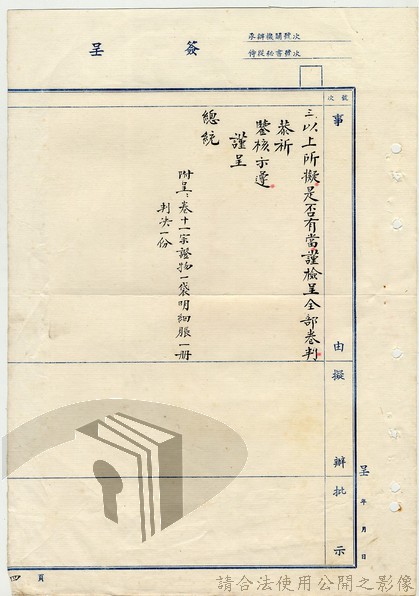 簽呈
承辦機關號次
侍從秘書號次
號次
事由擬辦批示
三、以上所擬是否有當謹檢呈全部卷判
恭祈
鑒核示遵
謹呈
總統
附呈：卷十一宗證物一袋明細賬一冊
判決一份
呈 年 月 日
四頁
請合法使用公開之影像